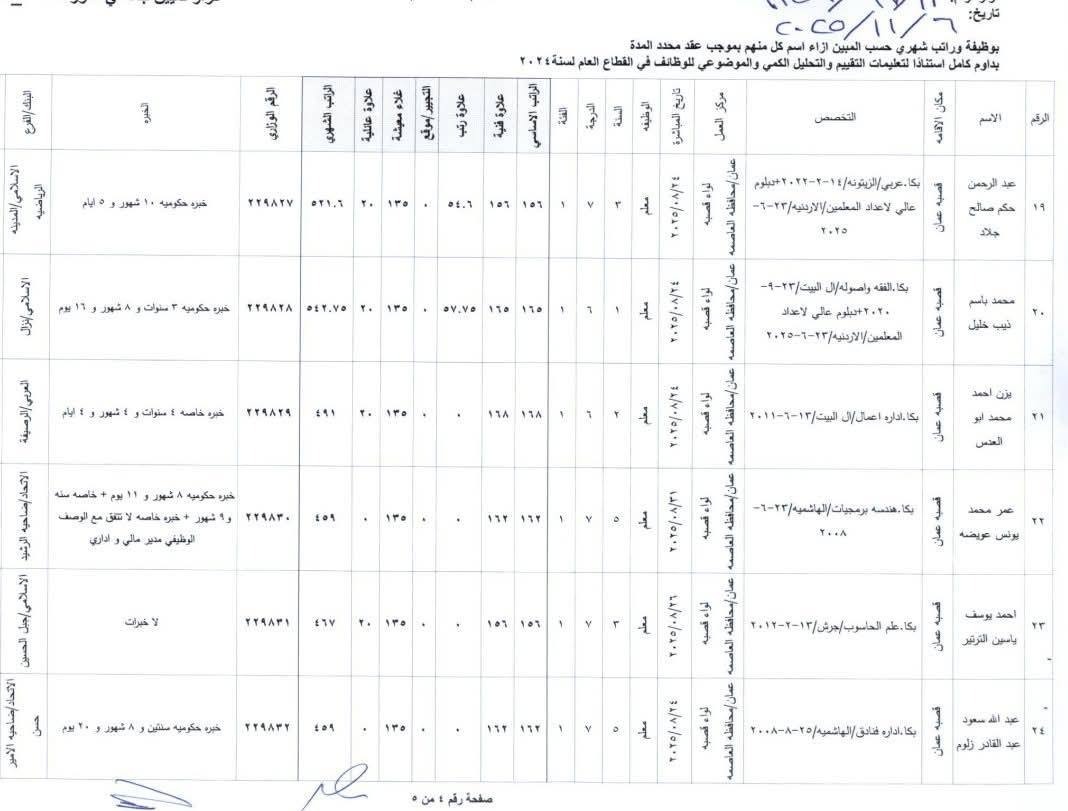 تاريخ:
٢٠٢٥/١١/٦
بوظيفة وراتب شهري حسب المبين ازاء اسم كل منهم بموجب عقد محدد المدة
بداوم كامل استنادًا لتعليمات التقييم والتحليل الكمي والموضوعي للوظائف في القطاع العام لسنة ٢٠٢٤
الرقم الاسم مكان الاقامه التخصص مركز العمل تاريخ المباشرة الوظيفه السنة الدرجة الفئة الراتب الاساسي علاوة فنية علاوة رتب التجيير/موقع غلاء معيشة علاوة عائلية الراتب الشهري الرقم الوزاري الخبره البنك/الفرع
١٩ عبد الرحمن حكم صالح جلاد قصبة عمان بكا.عربي/الزيتونه/١٤-٢-٢٠٢٢+دبلوم عالي لاعداد المعلمين/الاردنيه/٢٣-٦-٢٠٢٥ عمان/محافظه العاصمه لواء قصبه ٢٠٢٥/٠٨/٢٤ معلم ٣ ٧ ١ ١٥٦ ١٥٦ ٥٤.٦ ٠ ١٣٥ ٢٠ ٥٢١.٦ ٢٢٩٨٢٧ خبره حكوميه ١٠ شهور و ٥ ايام الاسلامي/المدينه الرياضيه
٢٠ محمد باسم ذيب خليل قصبة عمان بكا.الفقه واصوله/ال البيت/٢٣-٩-٢٠٢٠+دبلوم عالي لاعداد المعلمين/الاردنيه/٢٣-٦-٢٠٢٥ عمان/محافظه العاصمه لواء قصبه ٢٠٢٥/٠٨/٢٤ معلم ١ ٦ ١ ١٦٥ ١٦٥ ٥٧.٧٥ ٠ ١٣٥ ٢٠ ٥٤٢.٧٥ ٢٢٩٨٢٨ خبره حكوميه ٣ سنوات و ٨ شهور و ١٦ يوم الاسلامي/نزال
٢١ يزن احمد محمد ابو العدس قصبة عمان بكا.اداره اعمال/ال البيت/١٣-٦-٢٠١١ عمان/محافظه العاصمه لواء قصبه ٢٠٢٥/٠٨/٢٤ معلم ٢ ٦ ١ ١٦٨ ١٦٨ ٠ ٠ ١٣٥ ٢٠ ٤٩١ ٢٢٩٨٢٩ خبره خاصه ٤ سنوات و ٤ شهور و ٤ ايام العربي/الرصيفة
٢٢ عمر محمد يونس عويضه قصبة عمان بكا.هندسه برمجيات/الهاشميه/٢٣-٦-٢٠٠٨ عمان/محافظه العاصمه لواء قصبه ٢٠٢٥/٠٨/٣١ معلم ٥ ٧ ١ ١٦٢ ١٦٢ ٠ ٠ ١٣٥ ٠ ٤٥٩ ٢٢٩٨٣٠ خبره حكوميه ٨ شهور و ١١ يوم + خاصه سنه و٩ شهور + خبره خاصه لا تتفق مع الوصف الوظيفي مدير مالي و اداري الاتحاد/ضاحيه الرشيد
٢٣ احمد يوسف ياسين الترتير قصبة عمان بكا.علم الحاسوب/جرش/١٣-٢-٢٠١٢ عمان/محافظه العاصمه لواء قصبه ٢٠٢٥/٠٨/٢٦ معلم ٣ ٧ ١ ١٥٦ ١٥٦ ٠ ٠ ١٣٥ ٢٠ ٤٦٧ ٢٢٩٨٣١ لا خبرات الاسلامي/جبل الحسين
٢٤ عبد الله سعود عبد القادر زلوم قصبة عمان بكا.اداره فنادق/الهاشميه/٢٥-٨-٢٠٠٨ عمان/محافظه العاصمه لواء قصبه ٢٠٢٥/٠٨/٢٤ معلم ٥ ٧ ١ ١٦٢ ١٦٢ ٠ ٠ ١٣٥ ٠ ٤٥٩ ٢٢٩٨٣٢ خبره حكوميه سنتين و ٨ شهور و ٢٠ يوم الاتحاد/ضاحيه الامير حسن
صفحة رقم ٤ من ٥